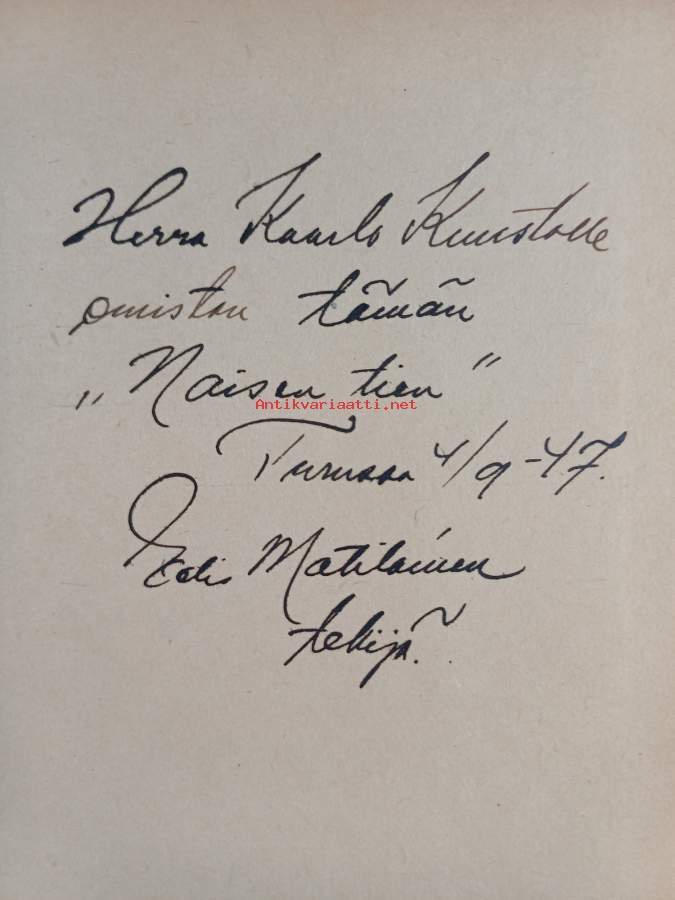 Herra Kaarlo Kuustolle
omistan tämän
„Naisen tien"
Antikvariaatti.net
Turussa 4/9-47.
Matilainen
tekijä.